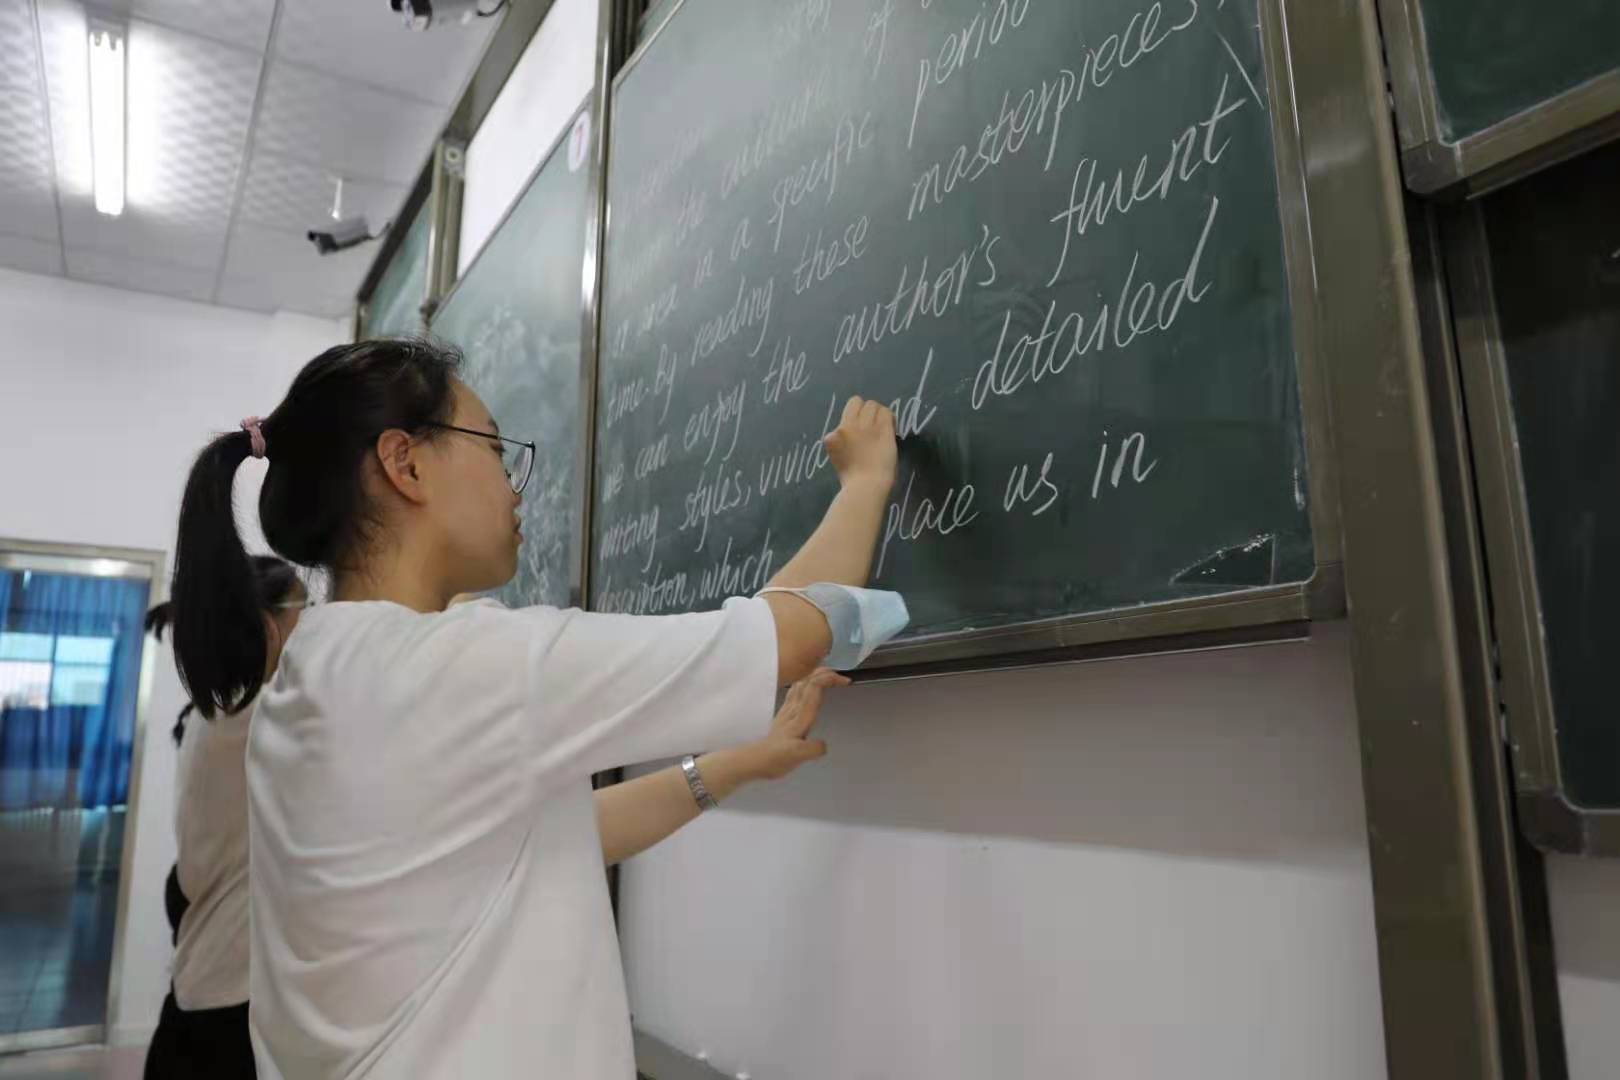 of
the culture
in area in a specific period
time. By reading these masterpieces,
we can enjoy the author's fluent
writing styles, vivid and detailed
description, which place us in
7